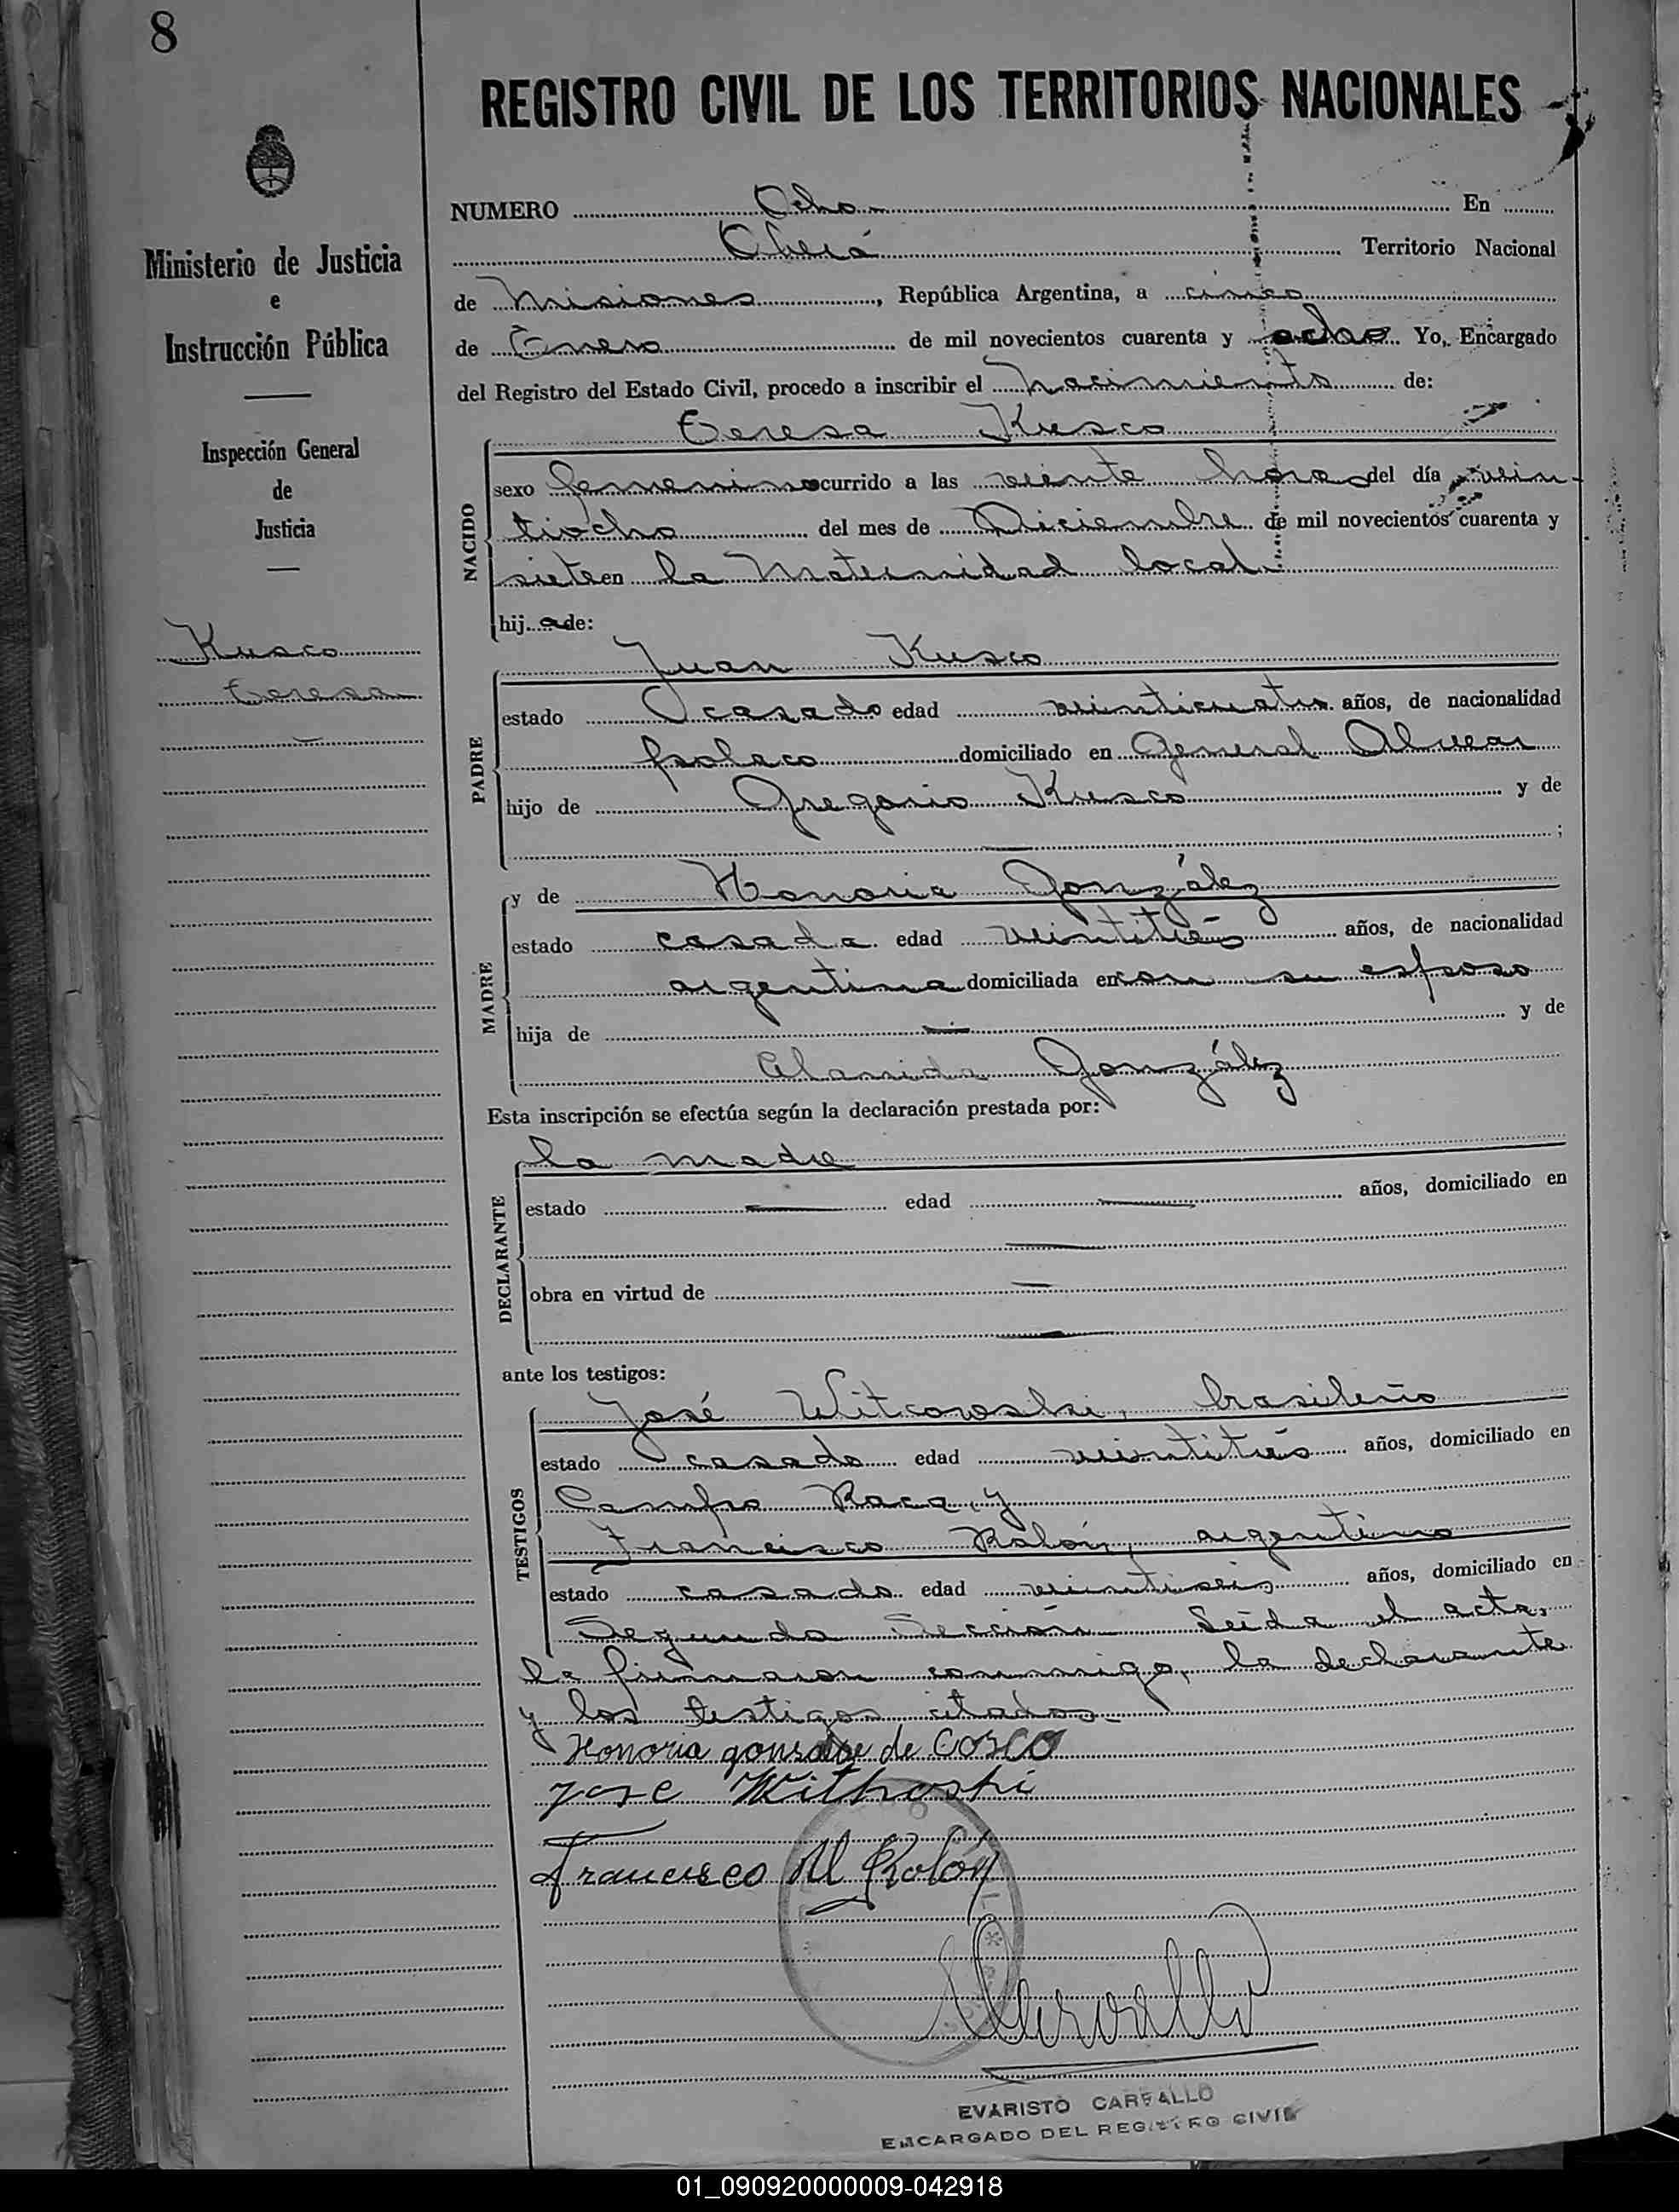 8
REGISTRO CIVIL DE LOS TERRITORIOS NACIONALES
Ministerio de Justicia
e
Instrucción Pública
Inspección General
de
Justicia
Kusco
Teresa
NUMERO Ocho En
Oberá Territorio Nacional
de Misiones, República Argentina, a cinco
de Enero de mil novecientos cuarenta y ocho Yo, Encargado
del Registro del Estado Civil, procedo a inscribir el nacimiento de:
Teresa Kusco
NACIDO
sexo femenino ocurrido a las veinte horas del día vein-
tiocho del mes de Diciembre de mil novecientos cuarenta y
siete en la Maternidad local.
hija de:
Juan Kusco
PADRE
estado casado edad veinticuatro años, de nacionalidad
polaco domiciliado en General Alvear
hijo de Gregorio Kusco y de
;
y de Honoria González
MADRE
estado casada edad veintitrés años, de nacionalidad
argentina domiciliada en con su esposo
hija de y de
González
Esta inscripción se efectúa según la declaración prestada por:
la madre
DECLARANTE
estado edad años, domiciliado en
obra en virtud de
ante los testigos:
José Witcowski, brasileño
TESTIGOS
estado casado edad veintitrés años, domiciliado en
Campo Roca, y
Francisco Rolón, argentino
estado casado edad veintiseis años, domiciliado en
Segunda Sección Leída el acta,
la firmaron conmigo, la declarante
y los testigos citados.-
Honoria de Cosco
Jose
Francisco M Rolón
EVARISTO CARBALLO
ENCARGADO DEL REGISTRO CIVIL
01_090920000009-042918